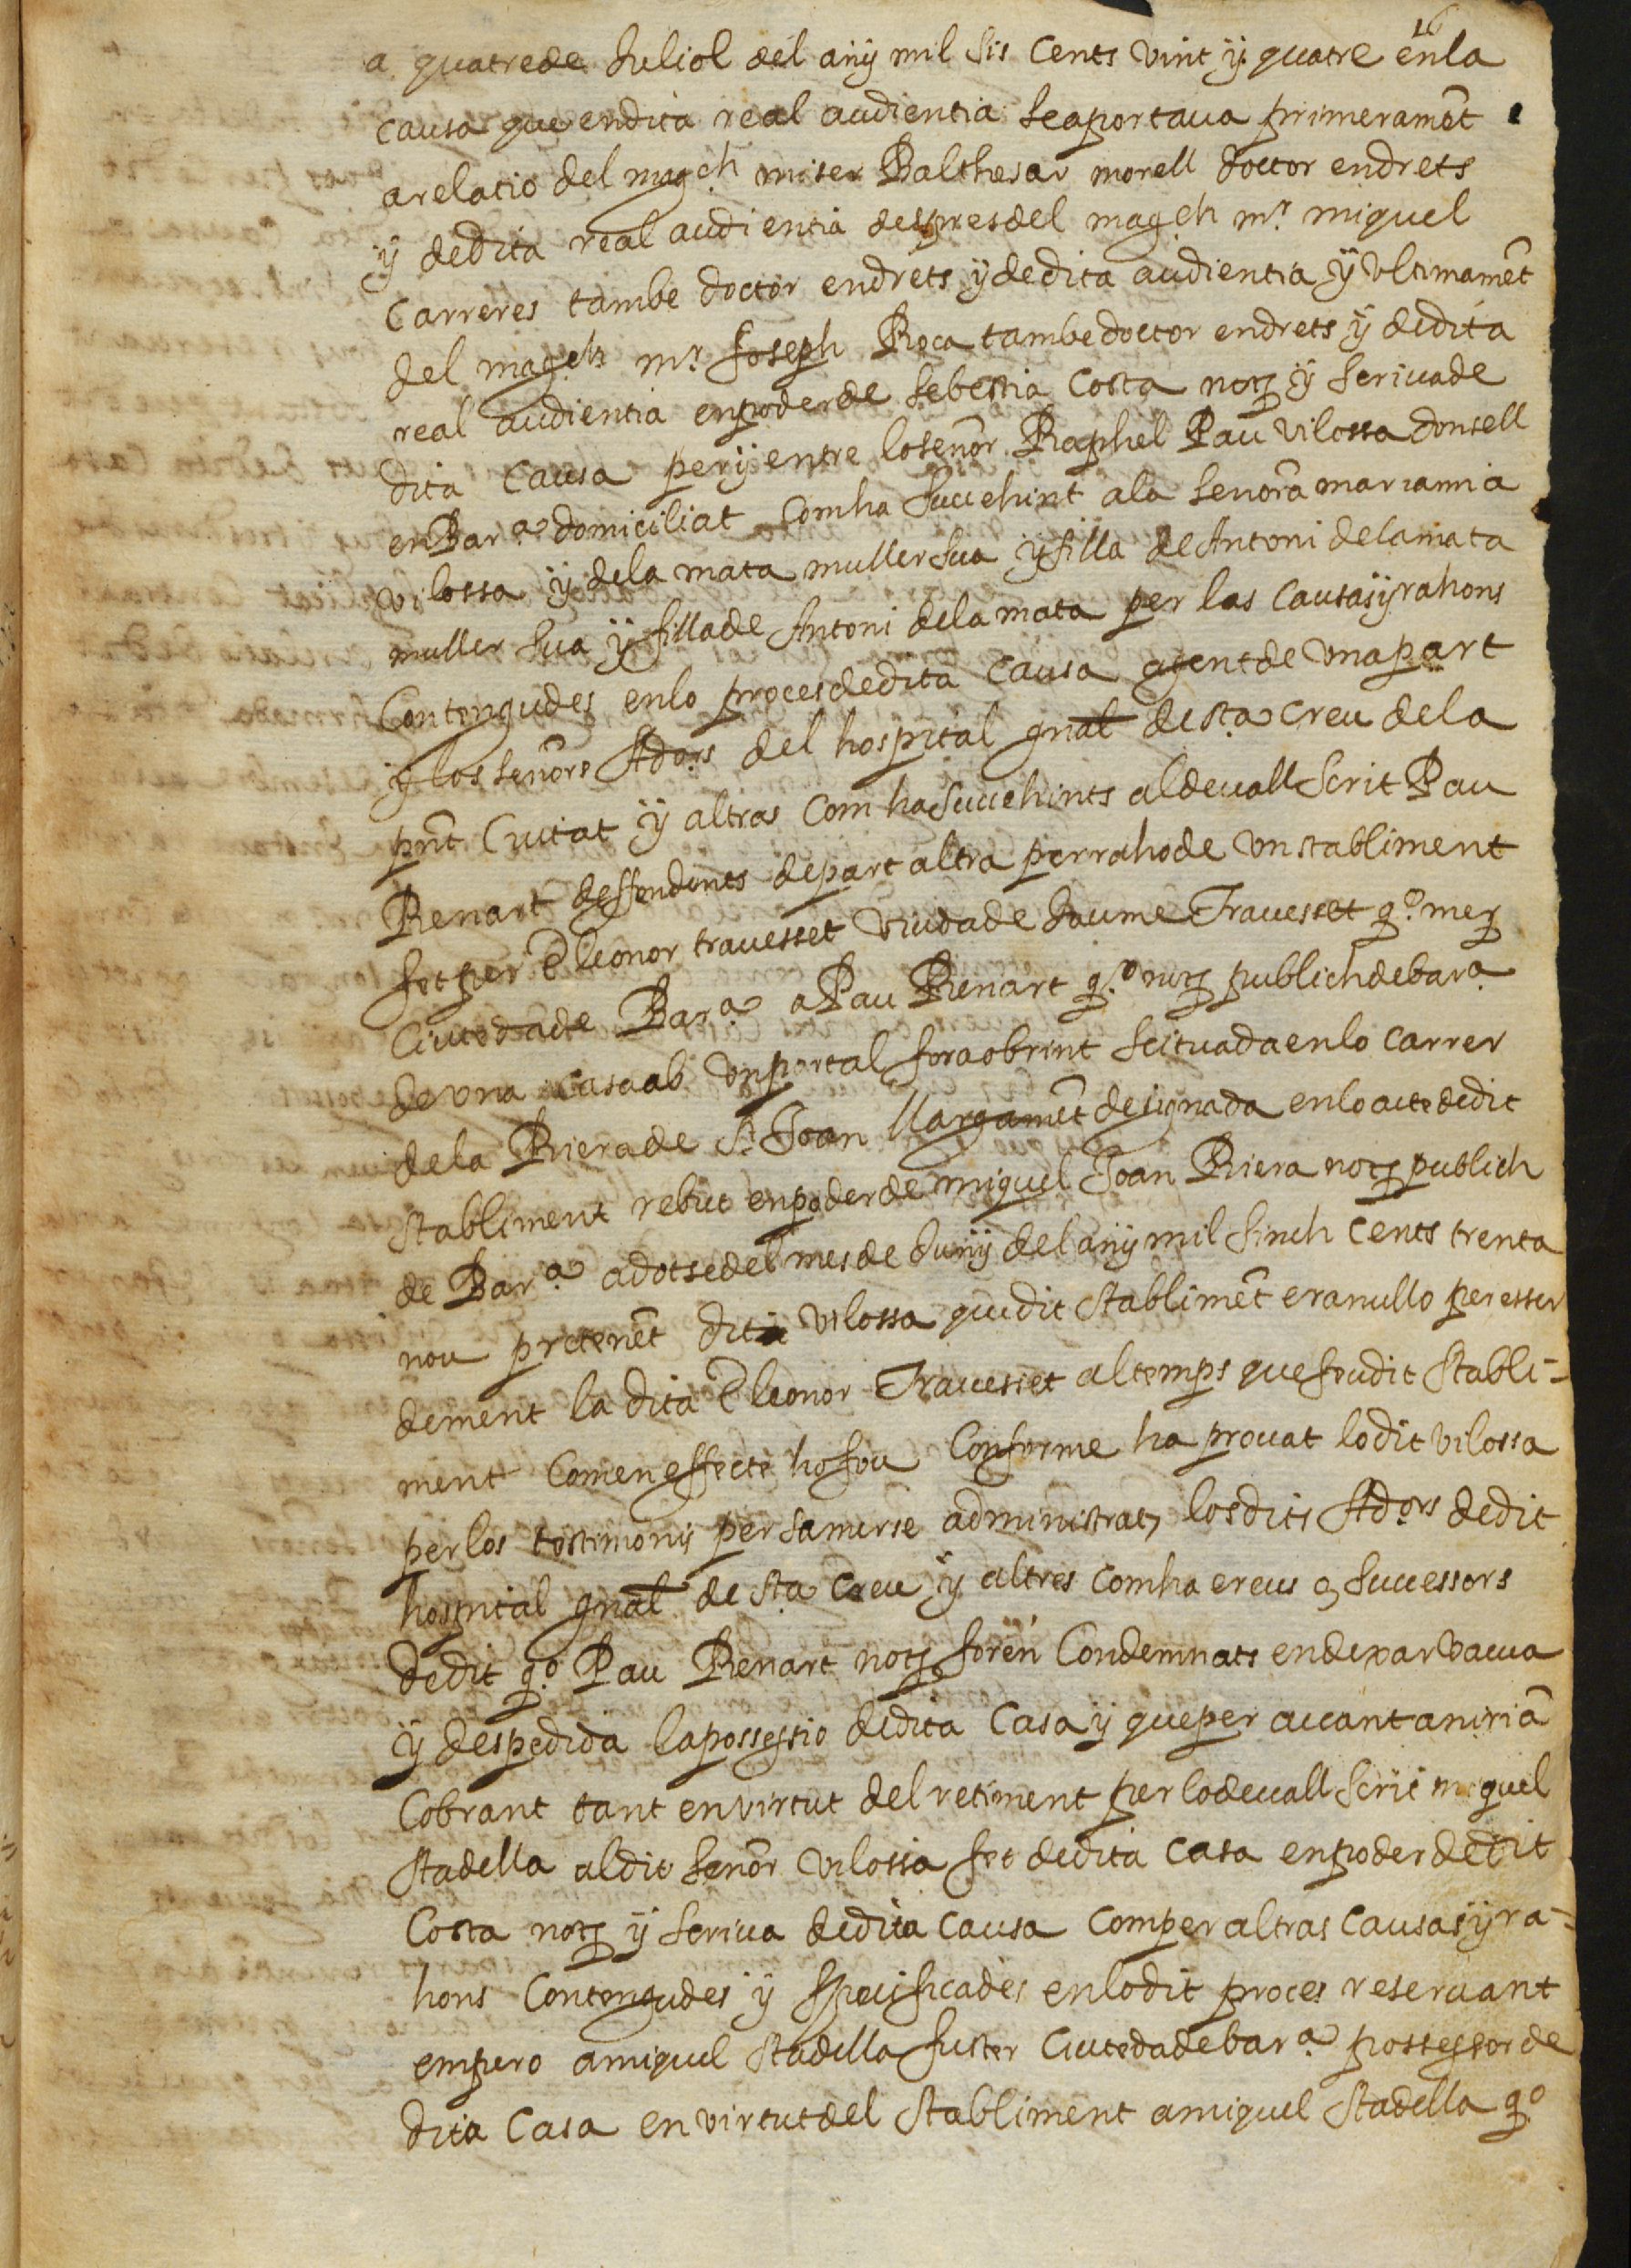 16
a quatre de Juliol del añy mil sis Cents vint y quatre en la
causa que en dita real audientia se aportaua primeramēt
a relatio del magch miser Balthesar morell doctor en drets
y de dita real audientia despres del magch mr. miquel
Carreres tambe doctor en drets y de dita audientia y vltimamēt
del magch mr. Joseph Roca tambe doctor en drets y de dita
real audientia en poder de Sebestia Costa notj y scriua de
dita causa per y entre lo señor Raphel Pau vilossa donsell
en Bara. domiciliat com ha succehint a la señora marianna
vilossa y de la mata muller sua y filla de Antoni de la mata
muller sua y filla de Antoni de la mata per las causas y rahons
Contengudes en lo proces de dita causa agent de vna part
y los señors Adors del hospital gnal de sta creu de la
pñt Ciutat y altras com ha succehints al devall scrit Pau
Renart deffendents de part altra per raho de vn stabliment
fet per Eleonor trauesset viuda de Jaume Trauesset qo. mer
Ciutedade Bara. a Pau Renart qo. notj publich de bara.
de vna casa ab vn portal fora obrint scituada en lo carrer
de la Riera de St. Joan llargamēt designada en lo acte de dit
stabliment rebut en poder de miquel Joan Riera notj publich
de Bara. a dotse del mes de Juny del añy mil sinch cents trenta
nou pretenēt dita vilossa que dit stablimēt era nullo per esser
dement la dita Eleonor Trauesset al temps que feu dit stabli-
ment Com en effecte ho fou Conforme ha prouat lo dit vilossa
per los testimonis per sa mersе administrats los dits Adors de dit
hospital gnal de sta creu y altres com ha ereus o successors
de dit qo. Pau Renart notj foren Condemnats en dexar vacua
y despedida la possessio de dita Casa y que per auant aniriā
Cobrant tant en virtut del retiment per lo devall scrit miquel
stadella al dit señor vilossa fet de dita casa en poder de dit
Costa notj y scriua de dita causa com per altras causas y ra-
hons Contengudes y specificades en lo dit proces reseruant
empero a miquel stadella fuster Ciutedade bara. possessor de
dita Casa en virtut del stabliment a miquel stadella qo.